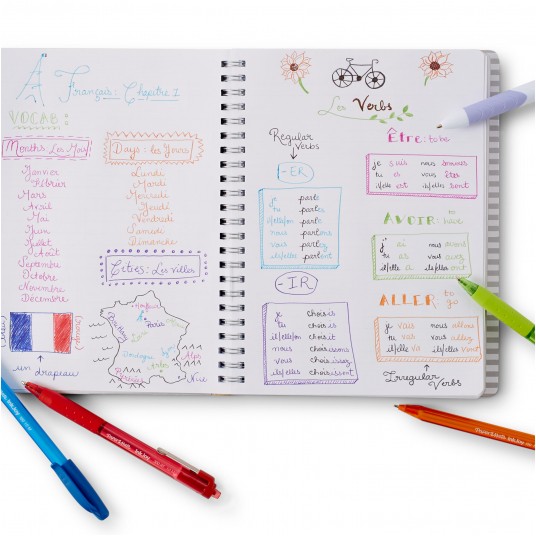 Français: Chapitre 1
VOCAB:
Months: Les Mois
Janvier
Février
Mars
Avril
Mai
Juin
Juillet
Août
Septembre
Octobre
Novembre
Décembre
un drapeau
Days: Les Jours
Lundi
Mardi
Mercredi
Jeudi
Vendredi
Samedi
Dimanche
Cities: Les Villes
Paris
Alps
Nice
Les Verbs
Regular
Verbs
-ER
j' parle
tu parles
il/elle/on parle
nous parlons
vous parlez
ils/elles parlent
-IR
je choisis
tu choisis
il/elle/on choisit
nous choisissons
vous choisissez
ils/elles choisissent
Être: to be
je suis nous sommes
tu es vous êtes
il/elle est ils/elles sont
AVOIR: to have
j' ai nous avons
tu as vous avez
il/elle a ils/elles ont
ALLER: to go
je vais nous allons
tu vas vous allez
il/elle va ils/elles vont
Irregular Verbs
PaperMate InkJoy
PaperMate InkJoy
PaperMate InkJoy